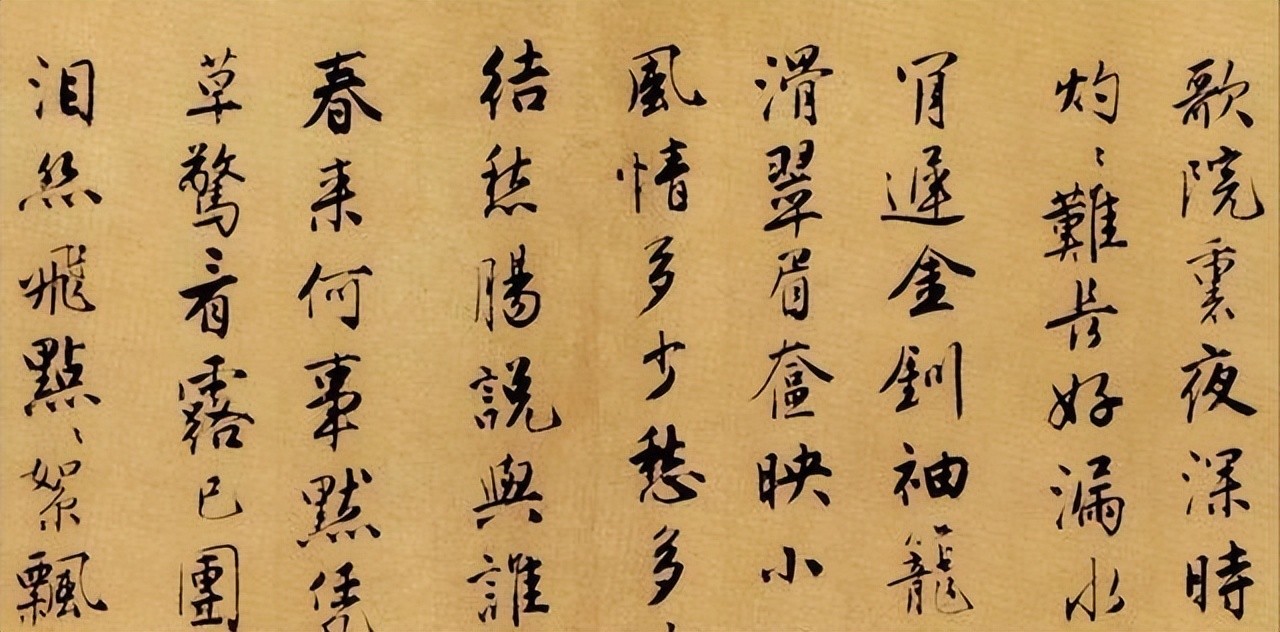 歌院裏夜深時
灼〻難長好漏水
遲金釧袖籠
滑翠眉奩映小
風情多少愁多
結愁腸說與誰
春來何事默
草驚看露已團
泪絲飛點〻絮飄